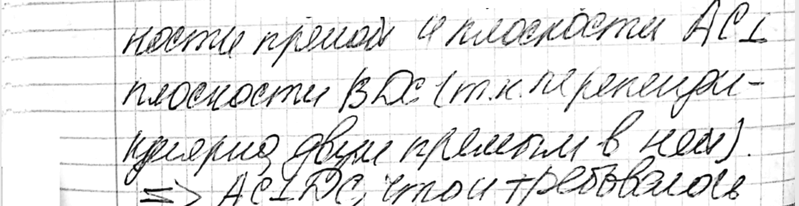 ности прямой и плоскости AC⊥
плоскости BDC (т.к. перпенди-
кулярна двум прямым в ней).
=> AC⊥DC, что и требовалось